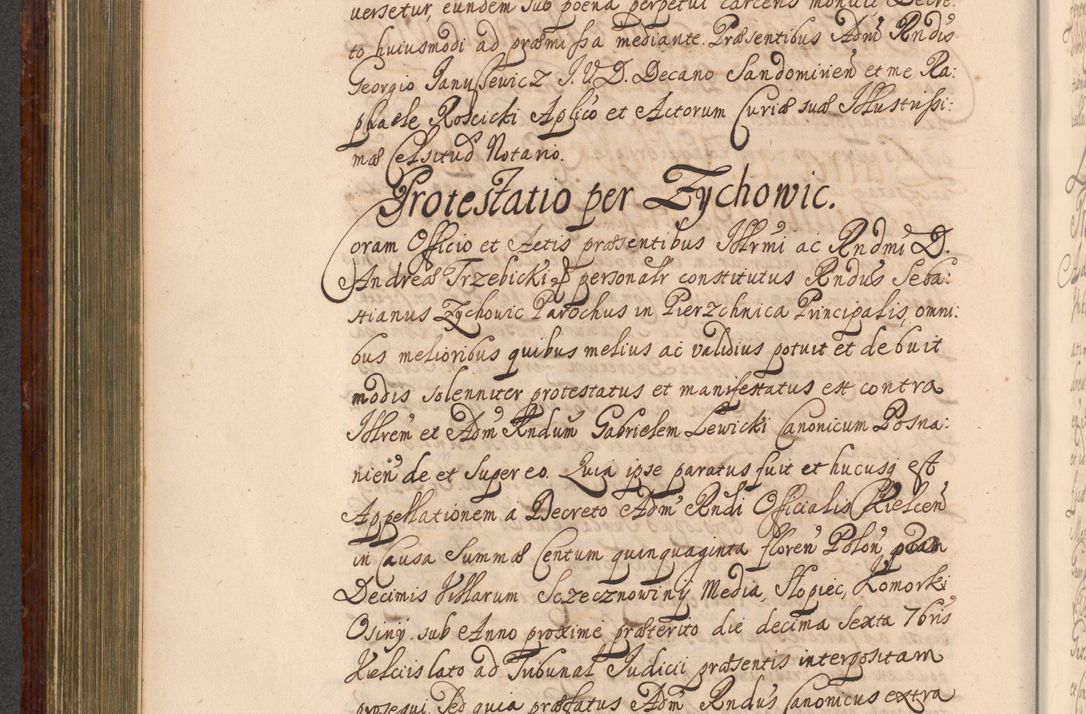 versetur, eundem sub poena perpetui carceris monuit Decre:
to huiusmodi ad præmissa mediante. Præsentibus Adm Rndis
Georgio Janussewicz J. V. D. Decano Sandomirień et me Ra:
phaele Roscicki Aplico et Actorum Curiæ suæ Illustrissi:
mæ Celsitud Notario.
Protestatio per Zychowic.
Coram Officio et Actis præsentibus Illrmi ac Rndmi D.
Andreæ Trzebicki personalr constitutus Rndus Seba:
stianus Zychowic Parochus in Pierzchnica Principalis, omni:
bus melioribus quibus melius ac validius potuit et debuit
modis solenniter protestatus et manifestatus est contra
Illrem et Adm Rndum Gabrielem Lewicki Canonicum Posna:
nień de et super eo. Quia ipse paratus fuit et hucusq est
Appellationem a Decreto Adm Rndi Officialis Kielceń
in Causa Summæ Centum quinquaginta floreń Poloń
Decimis Villarum Sczecznowiny Media, Slopiec, Komorki
Osiny. sub Anno proxime præterito die decima sexta 7bris
Kielciis lato ad Tribunal Judicii præsentis interpositam
prosequi. Sed quia præfatus Adm Rndus Canonicus extra